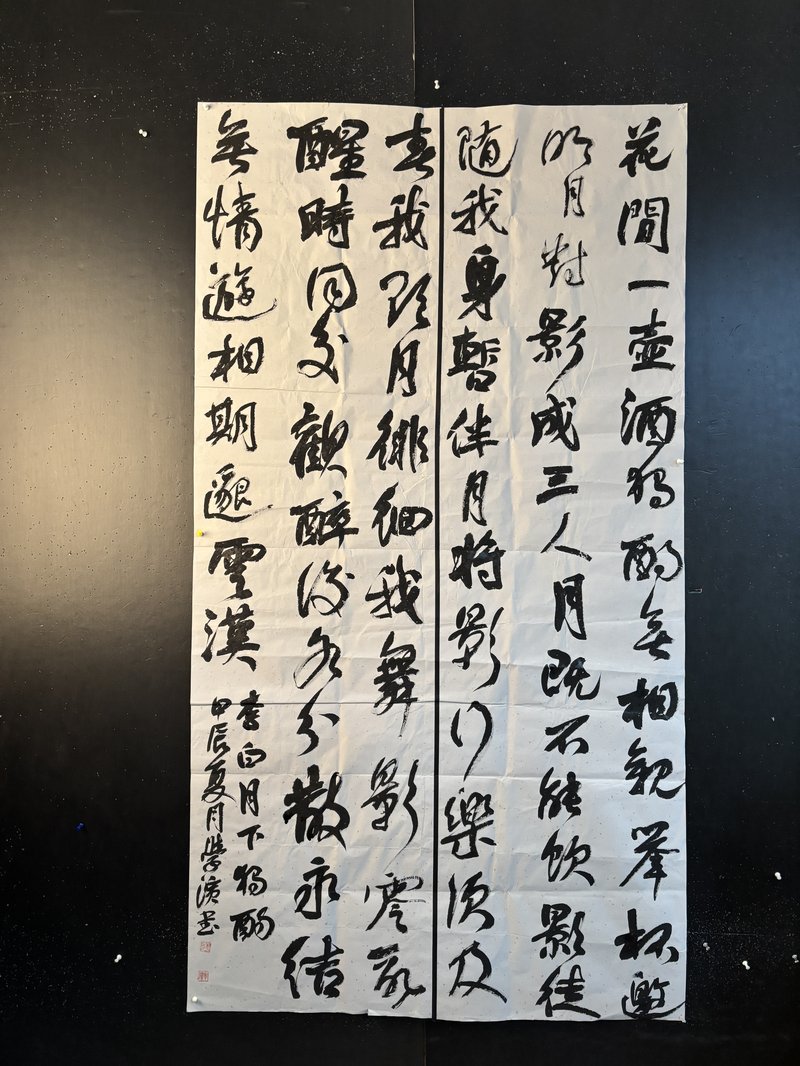 花間一壺酒獨酌無相親舉杯邀
明月對影成三人月既不能飲影徒
随我身暫伴月將影行樂須及
春我歌月徘徊我舞影零亂
醒時同交歡醉後各分散永結
無情遊相期邈雲漢
李白月下獨酌
甲辰夏月學濱書